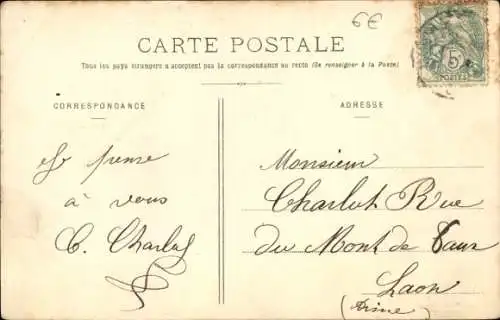 6€
CARTE POSTALE
Tous les pays étrangers n'acceptent pas la correspondance au recto (Se renseigner à la Poste)
CORRESPONDANCE
ADRESSE
5
POSTES
Je pense
à vous
C. Charlut
Monsieur
Charlut Rue
du Mont de
Laon
(Aisne)